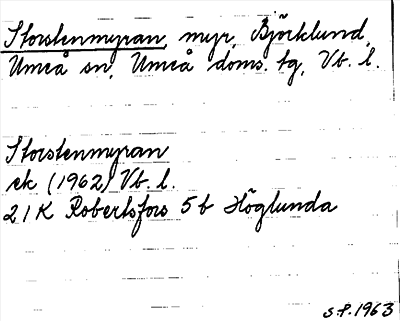 Storstenmyran, myr, Björklund,
Umeå sn, Umeå doms. tg, Vb. l.
Storstenmyran
ek (1962) Vb. l.
21K Robertsfors 5b Höglunda
S.P. 1963